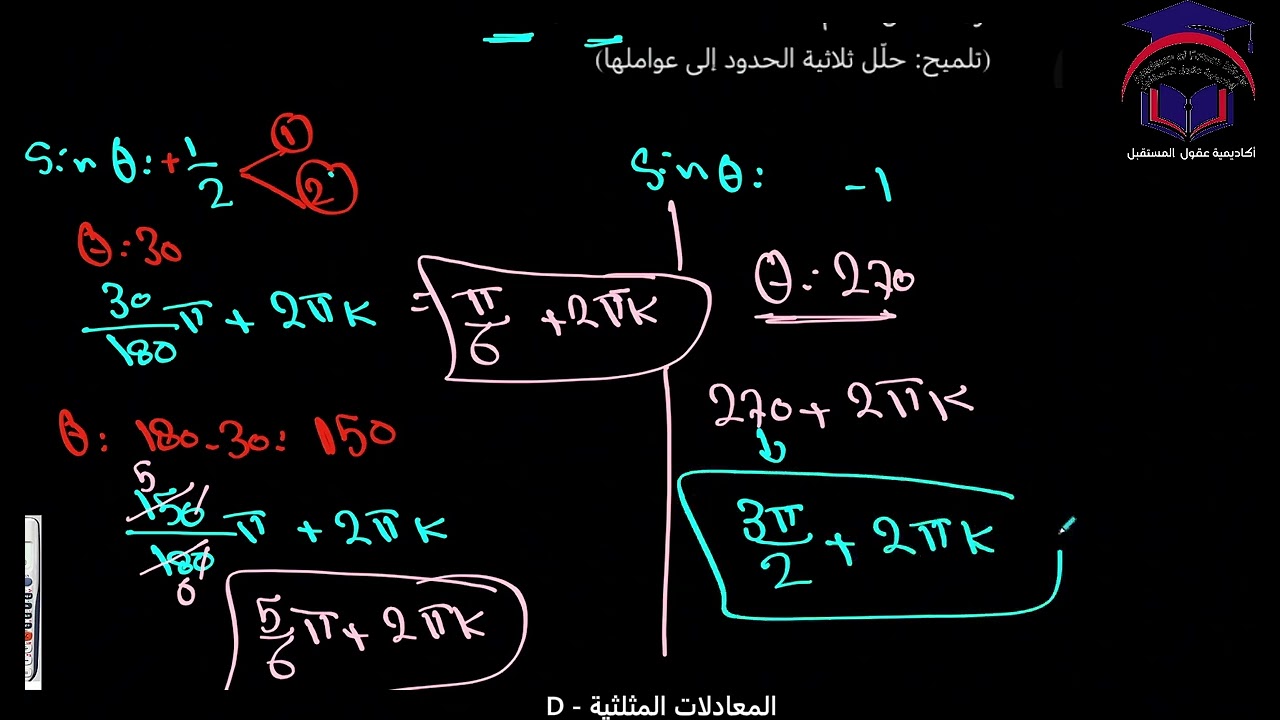 (تلميح: حلّل ثلاثية الحدود إلى عواملها)
أكاديمية عقول المستقبل
sin θ: + 1/2
1
2
θ: 30
30/180 π + 2πK = π/6 + 2πK
θ: 180 - 30: 150
5
150/180 π + 2πK
6
5/6 π + 2πK
sin θ: -1
θ: 270
270 + 2πK
3π/2 + 2πK
المعادلات المثلثية - D